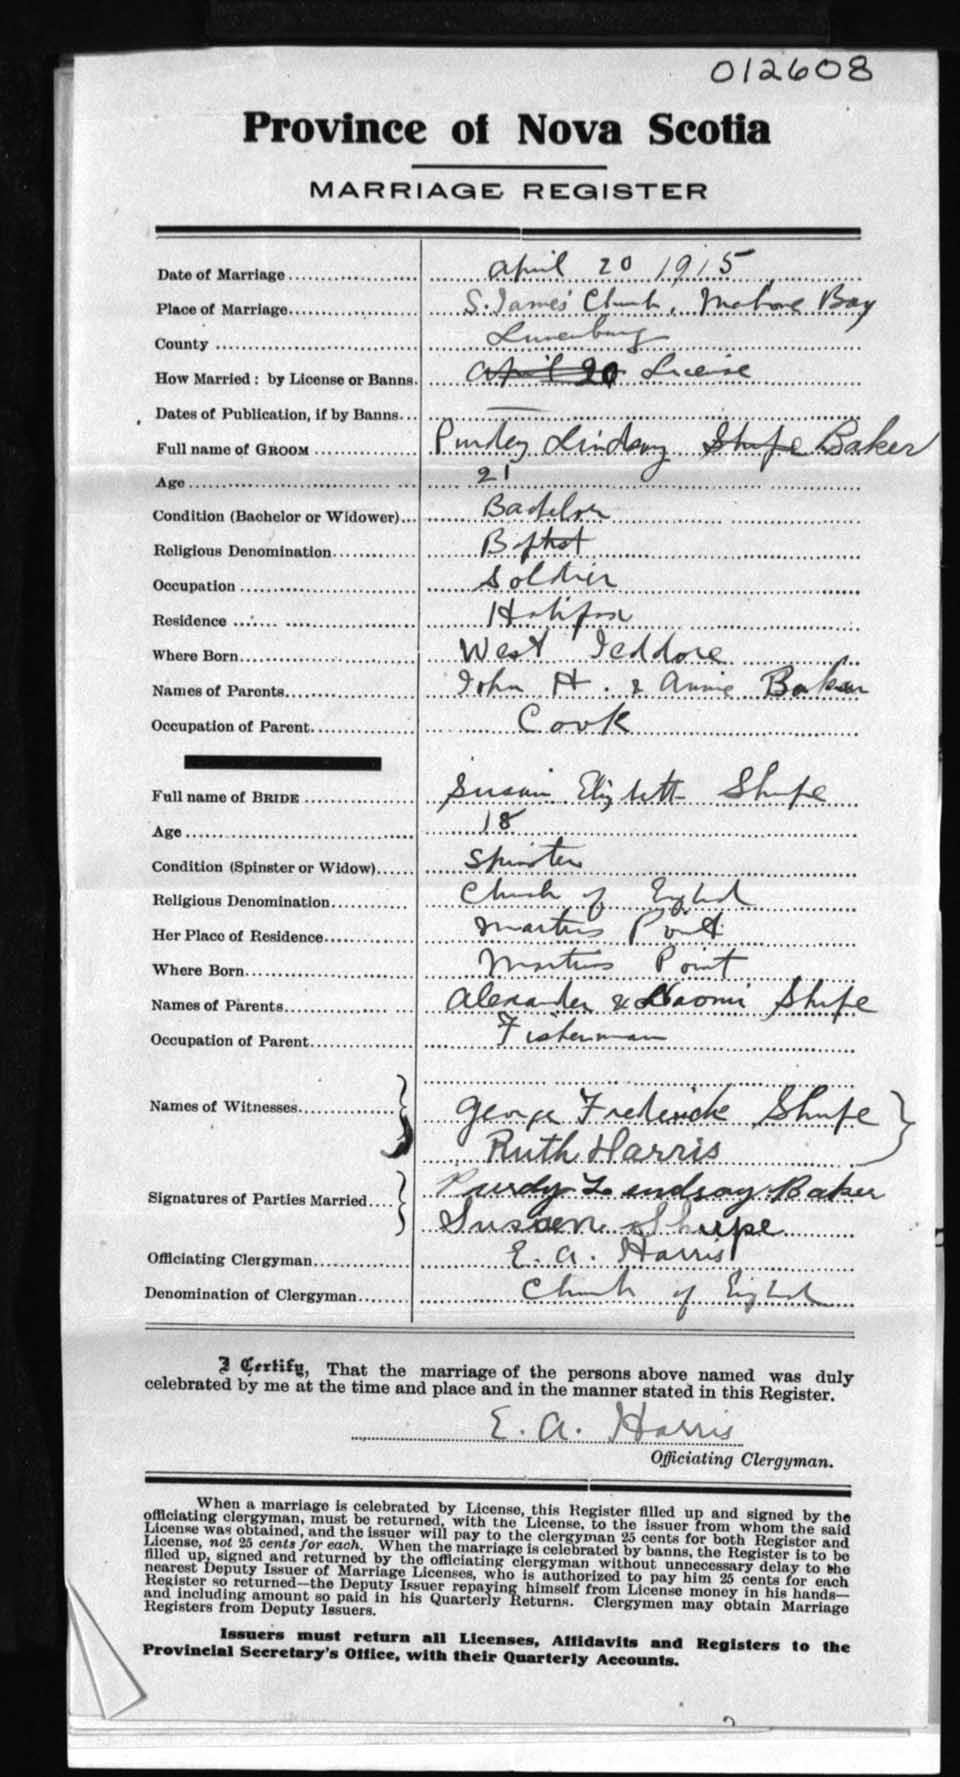 012608
Province of Nova Scotia
MARRIAGE REGISTER
Date of Marriage April 20 1915
Place of Marriage S. James' Church, Mahone Bay
County Lunenburg
How Married: by License or Banns. April 20 License
Dates of Publication, if by Banns... —
Full name of GROOM Purdey Lindsay Shupe Baker
Age 21
Condition (Bachelor or Widower)... Bachelor
Religious Denomination Baptist
Occupation Soldier
Residence Halifax
Where Born West Jeddore
Names of Parents John H. & Annie Baker
Occupation of Parent Cook
Full name of BRIDE Susan Elizabeth Shupe
Age 18
Condition (Spinster or Widow) Spinster
Religious Denomination Church of England
Her Place of Residence Martins Point
Where Born Martins Point
Names of Parents Alexander & Naomi Shupe
Occupation of Parent Fisherman
Names of Witnesses George Frederick Shupe
Ruth Harris
Signatures of Parties Married Purdy Lindsay Baker
Susan Shupe
Officiating Clergyman E. A. Harris
Denomination of Clergyman Church of England
I Certify, That the marriage of the persons above named was duly
celebrated by me at the time and place and in the manner stated in this Register.
E. A. Harris
Officiating Clergyman.
When a marriage is celebrated by License, this Register filled up and signed by the
officiating clergyman, must be returned, with the License, to the issuer from whom the said
License was obtained, and the issuer will pay to the clergyman 25 cents for both Register and
License, not 25 cents for each. When the marriage is celebrated by banns, the Register is to be
filled up, signed and returned by the officiating clergyman without unnecessary delay to the
nearest Deputy Issuer of Marriage Licenses, who is authorized to pay him 25 cents for each
Register so returned—the Deputy Issuer repaying himself from License money in his hands—
and including amount so paid in his Quarterly Returns. Clergymen may obtain Marriage
Registers from Deputy Issuers.
Issuers must return all Licenses, Affidavits and Registers to the
Provincial Secretary's Office, with their Quarterly Accounts.